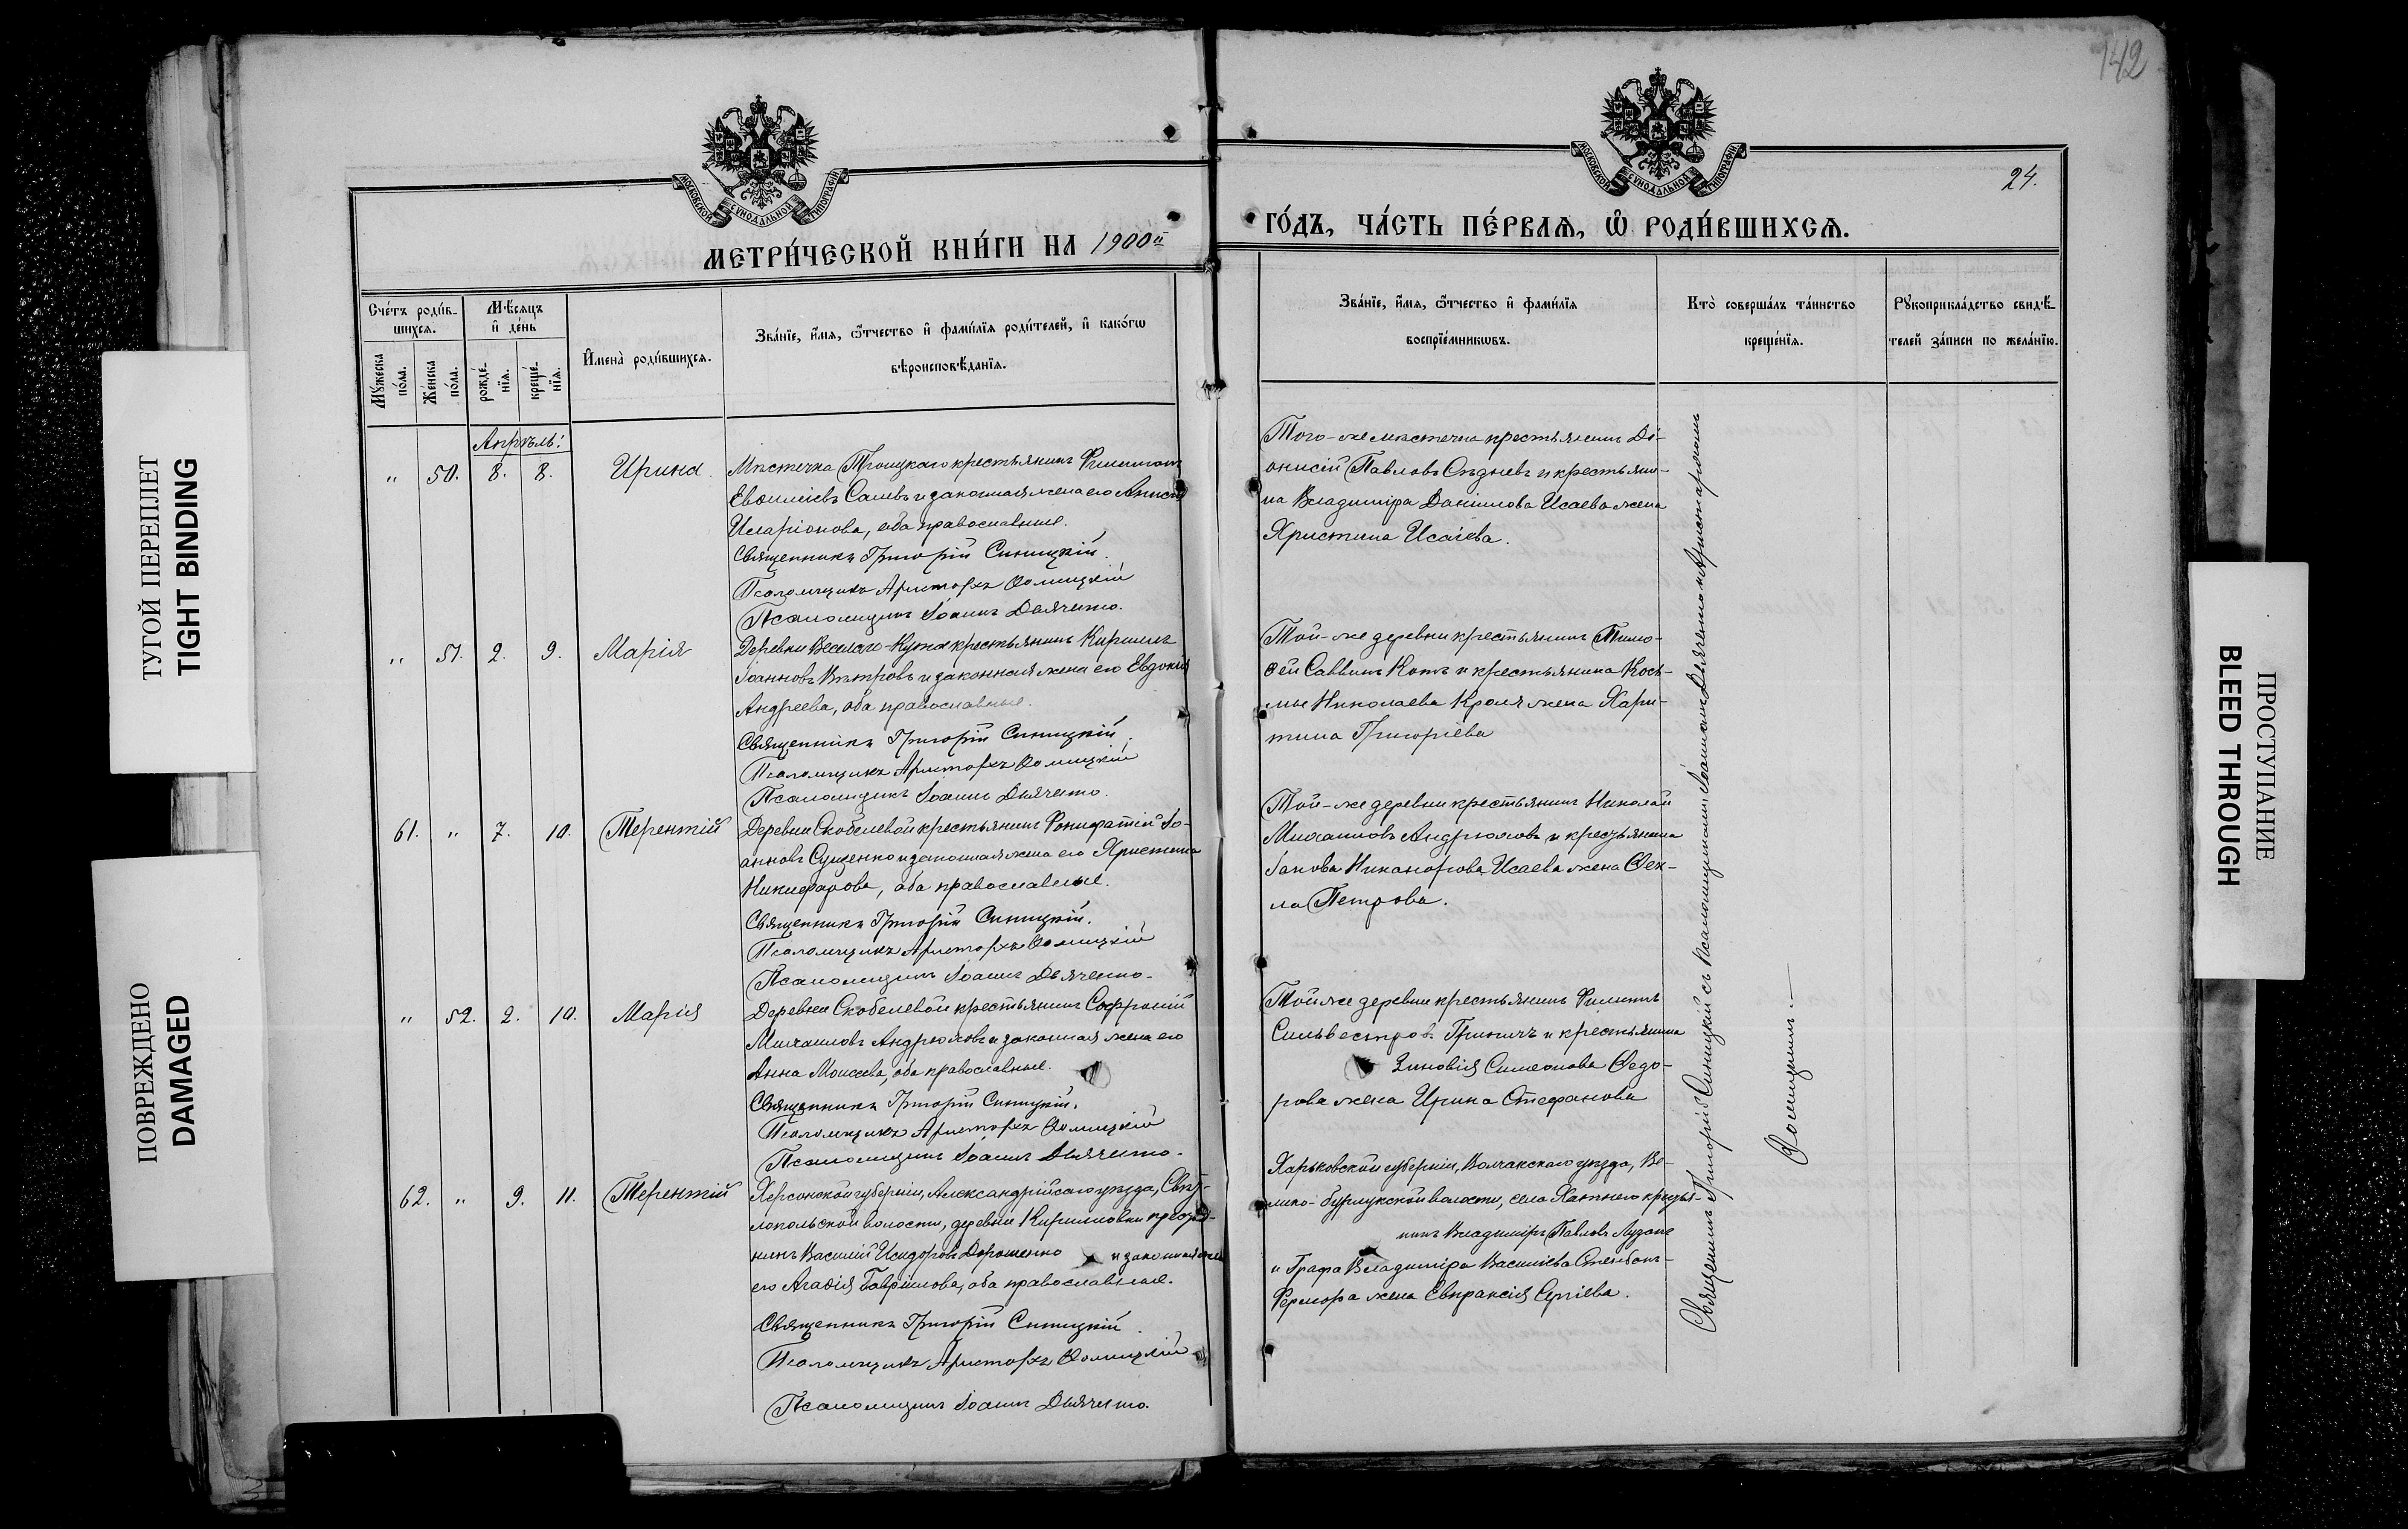 142
24.
МОСКОВСКОЙ СѴНОДАЛЬНОЙ ТИПОГРАФІИ
МОСКОВСКОЙ СѴНОДАЛЬНОЙ ТИПОГРАФІИ
МЕТРИ́ЧЕСКОЙ КНИ́ГИ НА 1900й
ГО́ДЪ, ЧА́СТЬ ПЕ́РВАѦ, Ѽ РОДИ́ВШИХСѦ.
Сче́тъ роди́в-
шихсѧ.
Мѣ́сяцъ
и҆ де́нь
Мꙋ́жеска по́ла.
Же́нска по́ла.
рожде́-
нїѧ.
креще́-
нїѧ.
И҆мена̀ роди́вшихсѧ.
Зва́нїе, и҆́мѧ, ѻ҆́тчество и҆ фами́лїѧ роди́телей, и҆ како́гѡ
вѣроисповѣ́данїѧ.
Зва́нїе, и҆́мѧ, ѻ҆́тчество и҆ фами́лїѧ
воспрїе́мникѡвъ.
Кто̀ соверша́лъ та́инство
креще́нїѧ.
Рꙋкоприкла́дство свидѣ́-
телей за́писи по жела́нїю.
Апрѣль:
" 50. 8. 8. Ирина.
Мѣстечка Троицкаго крестьянинъ Филимонъ
Евѳиміевъ Саевъ и законная жена его Анисія
Иларіонова, оба православные.
Священникъ Григорій Синицкій.
Псаломщикъ Аристархъ Ѳомицкій
Псаломщикъ Іоаннъ Дьяченко.
Того-же мѣстечка крестьянинъ Ді-
онисій Павловъ Сѣдневъ и крестьяни-
на Владиміра Даніилова Исаева жена
Христина Исаіева.
" 51. 2. 9. Марія
Деревни Веселаго-Кута крестьянинъ Кириллъ
Іоанновъ Вѣтровъ и законная жена его Евдокія
Андреева, оба православные.
Священникъ Григорій Синицкій.
Псаломщикъ Аристархъ Ѳомицкій
Псаломщикъ Іоаннъ Дьяченко.
Той-же деревни крестьянинъ Тимо-
ѳей Саввинъ Котъ и крестьянина Кось-
мы Николаева Кроля жена Хари-
тина Григоріева
61. " 7. 10. Терентій
Деревни Скобелевой крестьянинъ Вонифатій Іо-
анновъ Сущенко и законная жена его Христина
Никифорова, оба православные.
Священникъ Григорій Синицкій.
Псаломщикъ Аристархъ Ѳомицкій
Псаломщикъ Іоаннъ Дьяченко.
Той-же деревни крестьянинъ Николай
Михаиловъ Андрюховъ и крестьянина
Іакова Никанорова Исаева жена Ѳек-
ла Петрова.
" 52. 2. 10. Марія
Деревни Скобелевой крестьянинъ Софроній
Михаиловъ Андрюховъ и законная жена его
Анна Моисеева, оба православные.
Священникъ Григорій Синицкій.
Псаломщикъ Аристархъ Ѳомицкій
Псаломщикъ Іоаннъ Дьяченко.
Той же деревни крестьянинъ Филиппъ
Сильвестровъ Гриничъ и крестьянина
Зиновія Симеонова Ѳедо-
рова жена Ирина Стефанова
62. " 9. 11. Терентій
Херсонской губерніи, Александрійскаго уѣзда, Свѣт-
лопольской волости, деревни Кирилловки крестья-
нинъ Василій Исидоровъ Дорошенко и законная жена
его Агаѳія Гавріилова, оба православные.
Священникъ Григорій Синицкій.
Псаломщикъ Аристархъ Ѳомицкій
Псаломщикъ Іоаннъ Дьяченко.
Харьковской губерніи, Волчанскаго уѣзда, Ве-
лико-бурлукской волости, села Хатняго крестья-
нинъ Владиміръ Павловъ Лузанъ
и Графа Владиміра Васильева Стенбокъ-
Фермора жена Евпраксія Сергіева.
Священникъ Григорій Синицкій съ псаломщиками Іоанномъ Дьяченко и Аристархомъ
Ѳомицкимъ.—
ТУГОЙ ПЕРЕПЛЕТ
TIGHT BINDING
ПОВРЕЖДЕНО
DAMAGED
ПРОСТУПАНИЕ
BLEED THROUGH